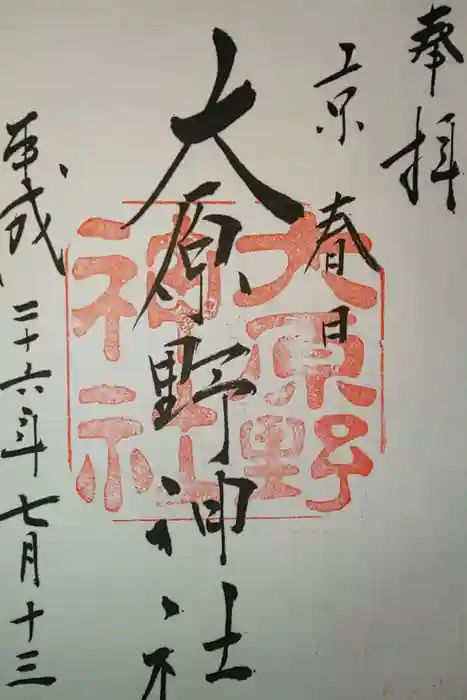 奉拝
京春日
大原野神社
平成二十六年七月十三
大原野
神社